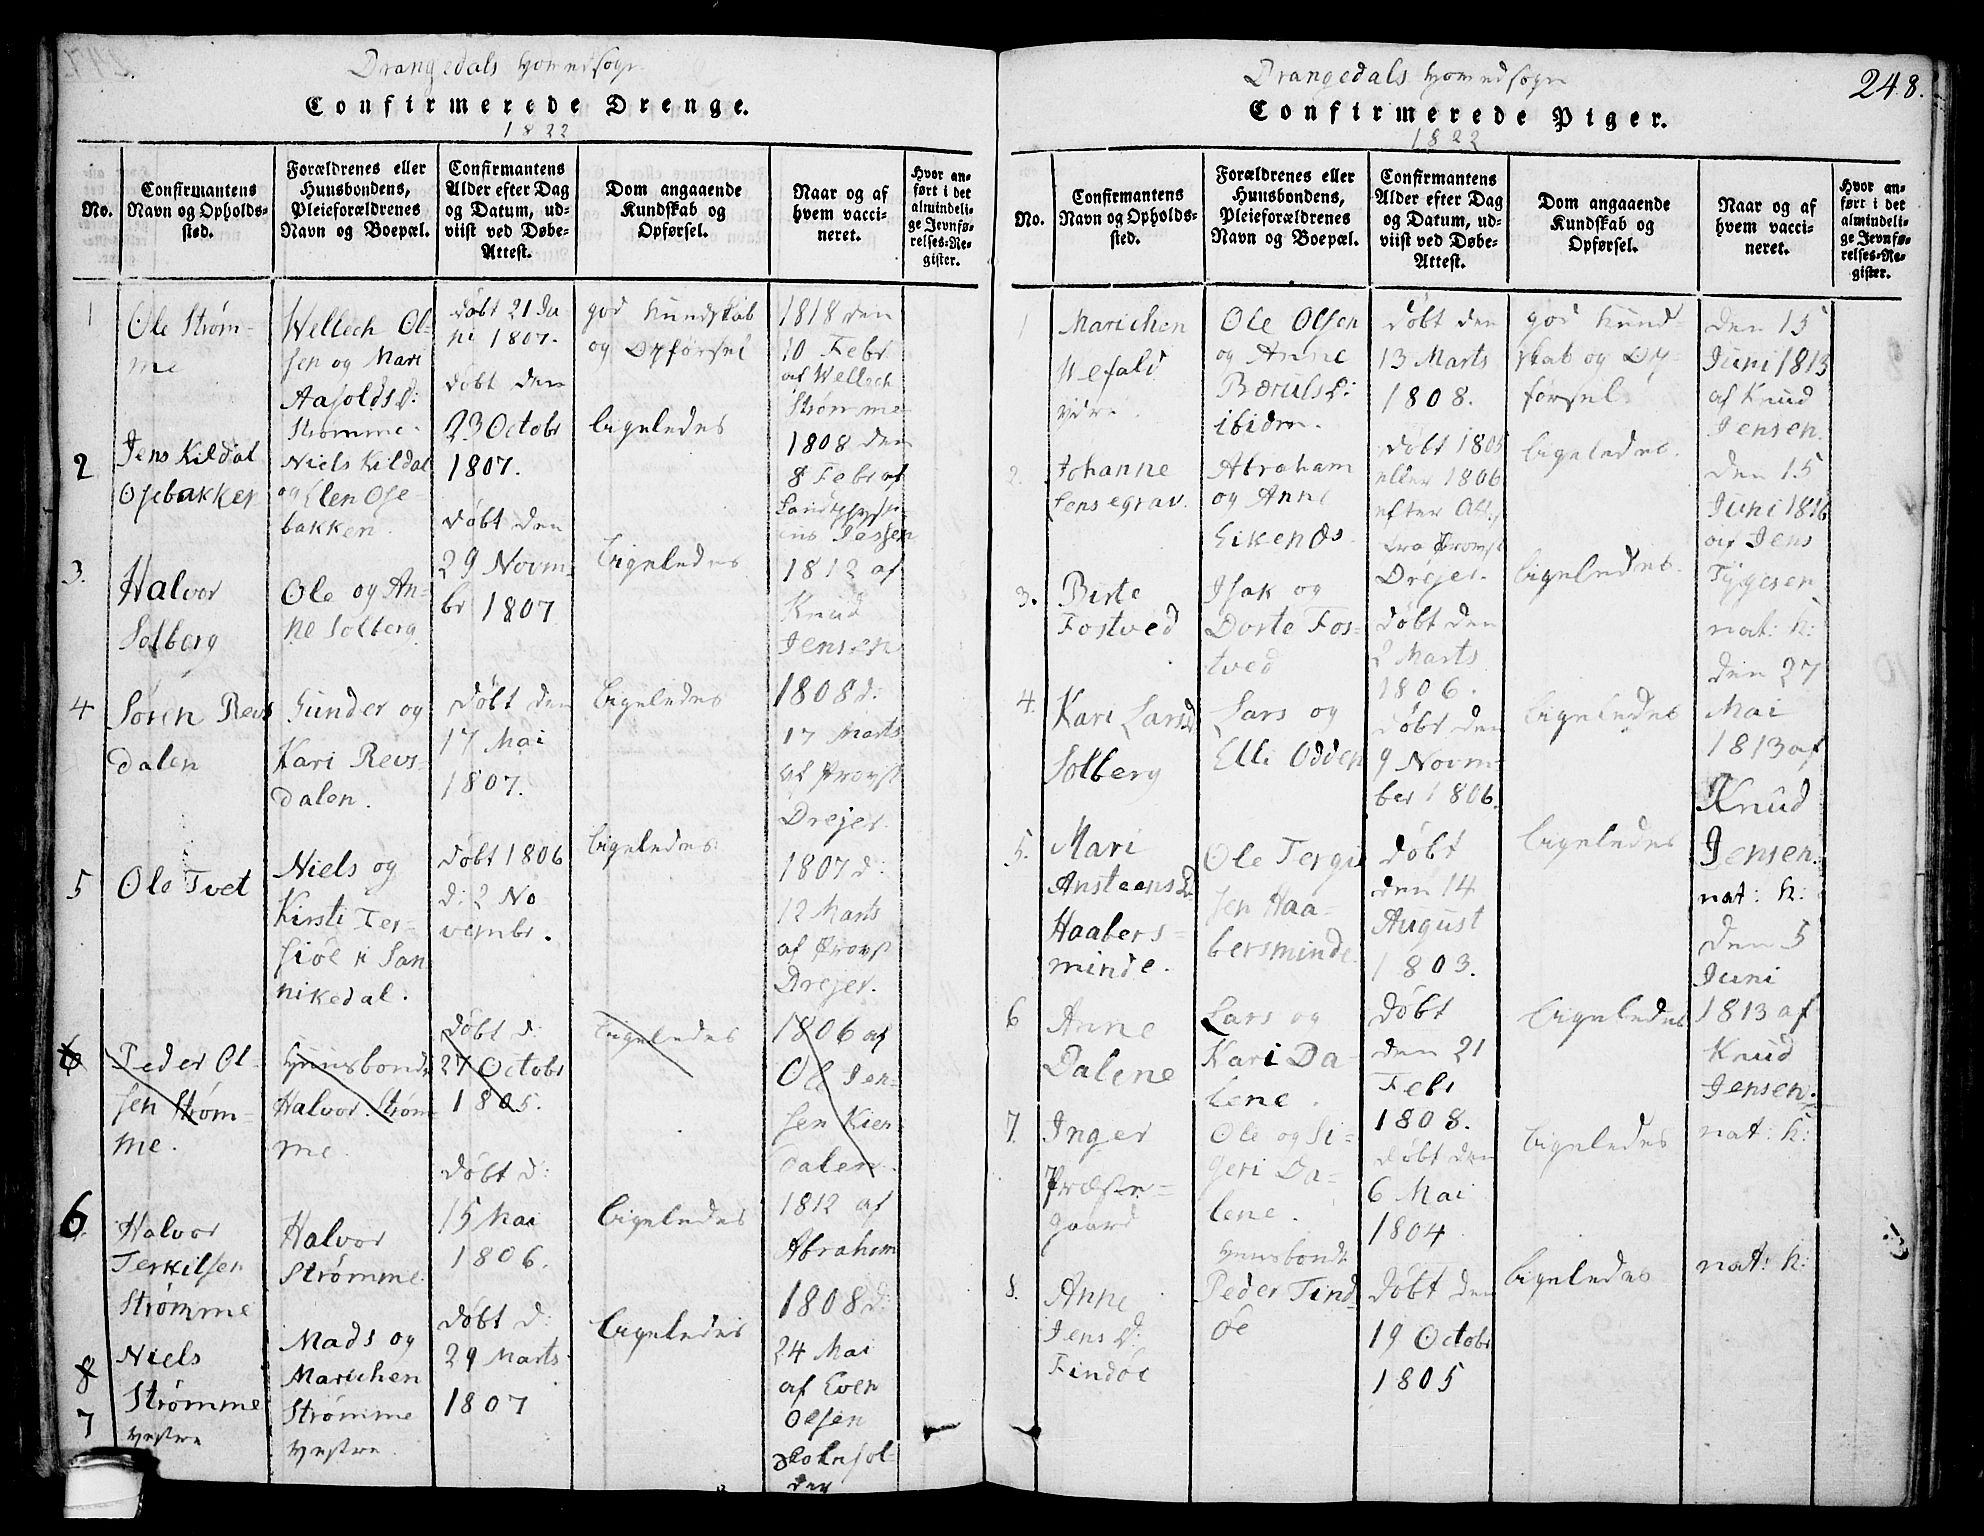 Drangedals Hovedsogn
Confirmerede Drenge.
1822
No.
Confirmantens
Navn og Opholds-
sted.
Forældrenes eller
Huusbondens,
Pleieforældrenes
Navn og Boepæl.
Confirmantens
Alder efter Dag
og Datum, ud-
viist ved Døbe-
Attest.
Dom angaaende
Kundskab og
Opførsel.
Naar og af
hvem vacci-
neret.
Hvor an-
ført i det
almindeli-
ge Jevnfø-
relses-Re-
gister.
1
Ole Strøm-
me
Wellech Ol-
sen og Mari
Aasoldsd:
Strømme
Døbt 21 Ju
ni 1807.
god Kundskab
og Opførsel
1818 den
10 Febr
af Wellech
Strømme
2
Jens Kildal
Osebakken
Niels Kildal
og Elen Ose-
bakken.
døbt den
23 Octobr
1807.
ligeledes
1808 den
8 Febr af
3.
Halvor
Solberg
Ole og An-
ne Solberg
Døbt den
29 Novm-
br 1807
ligeledes
1812 af
Knud
Jensen
4
Søren Revs
dalen
Gunder og
Kari Revs-
dalen.
Døbt den
17 Mai
1807.
ligeledes
1808 d:
17 Marts
af Provst
Drejer.
5
Ole Tvet
Niels og
Kirsti Ter-
siøe i San-
nikedal.
Døbt 1806
d: 2 No
vembr.
ligeledes
1807 d:
12 Marts
af Provst
Drejer.
6
Peder Ol-
sen Strøm-
me.
Huusbonde
Halvor Strøm-
me
døbt d:
27 Octobr
1805.
ligeledes
1806 af
Ole Jen-
sen Kien
dalen.
6
Halvor
Terkilsen
Strømme
Halvor
Strømme
døbt d:
15 Mai
1806.
ligeledes
1812 af
Abraham
8
7
Niels
Strømme
vestre
Mads og
Marichen
Strømme
vestre
døbt d:
29 Marts
1807
ligeledes
1808 d:
24 Mai
af Even
Olsen
Drangedals Hovedsogn
248.
Confirmerede Piger.
1822
No.
Confirmantens
Navn og Opholds-
sted.
Forældrenes eller
Huusbondens,
Pleieforældrenes
Navn og Boepæl.
Confirmantens
Alder efter Dag
og Datum, ud-
viist ved Døbe-
Attest.
Dom angaaende
Kundskab og
Opførsel.
Naar og af
hvem vacci-
neret.
Hvor an-
ført i det
almindeli-
ge Jevnfø-
relses-Re-
gister.
1
Marichen
Wefald
ydre
Ole Olsen
og Anne
Bærulsd:
ibidm.
Døbt den
13 Marts
1808.
god Kund-
skab og Op-
førsel.
den 15
Juni 1813
af Knud
Jensen.
2.
Johanne
Jensegrav.
Abraham
og Anne
Eikenes.
døbt 1805
eller 1806
efter Att:
fra Provst
Drejer.
ligeledes.
den 15
Juni 1816
af Jens
Tygesen
3.
Birte
Fostved
Isak og
Dorte Fos-
tved
døbt den
2 Marts
1806.
ligeledes.
nat: k:
4.
Kari Larsd
Solberg
Lars og
Elli Odden
døbt den
9 Novm-
ber 1806.
ligeledes
den 27
Mai
1813 af
Knud
Jensen.
5.
Mari
Ansteensd
Haabers-
minde.
Ole Tergi
sen Haa-
bersminde
døbt
den 14
August
1803.
ligeledes
nat: k:
6
Anne
Dalene
Lars og
Kari Da-
lene.
døbt
den 21
Febr
1808.
ligeledes
den 5
Juni
1813 af
Knud
Jensen.
7.
Inger
Præste-
gaard
Ole og Si-
geri Da-
lene.
døbt den
6 Mai
1804
ligeledes
nat: k:
8.
Anne
Jensd:
Findøe
Huusbonde
Peder Find
øe
døbt den
19 Octobr
1805
ligeledes
nat: k: